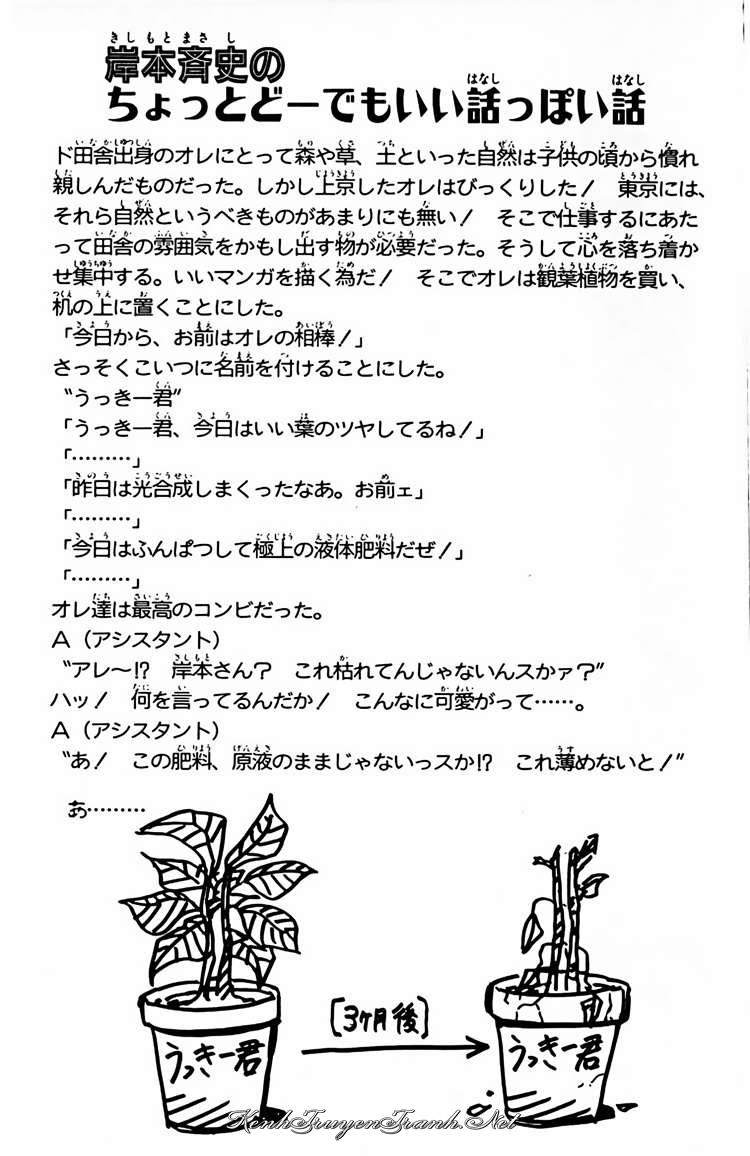 岸本斉史の
ちょっとどーでもいい話っぽい話
ド田舎出身のオレにとって森や草、土といった自然は子供の頃から慣れ
親しんだものだった。しかし上京したオレはびっくりした！　東京には、
それら自然というべきものがあまりにも無い！　そこで仕事するにあた
って田舎の雰囲気をかもし出す物が必要だった。そうして心を落ち着か
せ集中する。いいマンガを描く為だ！　そこでオレは観葉植物を買い、
机の上に置くことにした。
「今日から、お前はオレの相棒！」
さっそくこいつに名前を付けることにした。
〝うっきー君〟
「うっきー君、今日はいい葉のツヤしてるね！」
「………」
「昨日は光合成しまくったなあ。お前ェ」
「………」
「今日はふんぱつして極上の液体肥料だぜ！」
「………」
オレ達は最高のコンビだった。
A（アシスタント）
〝アレ～!?　岸本さん？　これ枯れてんじゃないんスかァ？〟
ハッ！　何を言ってるんだか！　こんなに可愛がって……。
A（アシスタント）
〝あ！　この肥料、原液のままじゃないっスか!?　これ薄めないと！〟
あ………
[3ヶ月後]
うっきー君
うっきー君
KenhTruyenTranh.Net